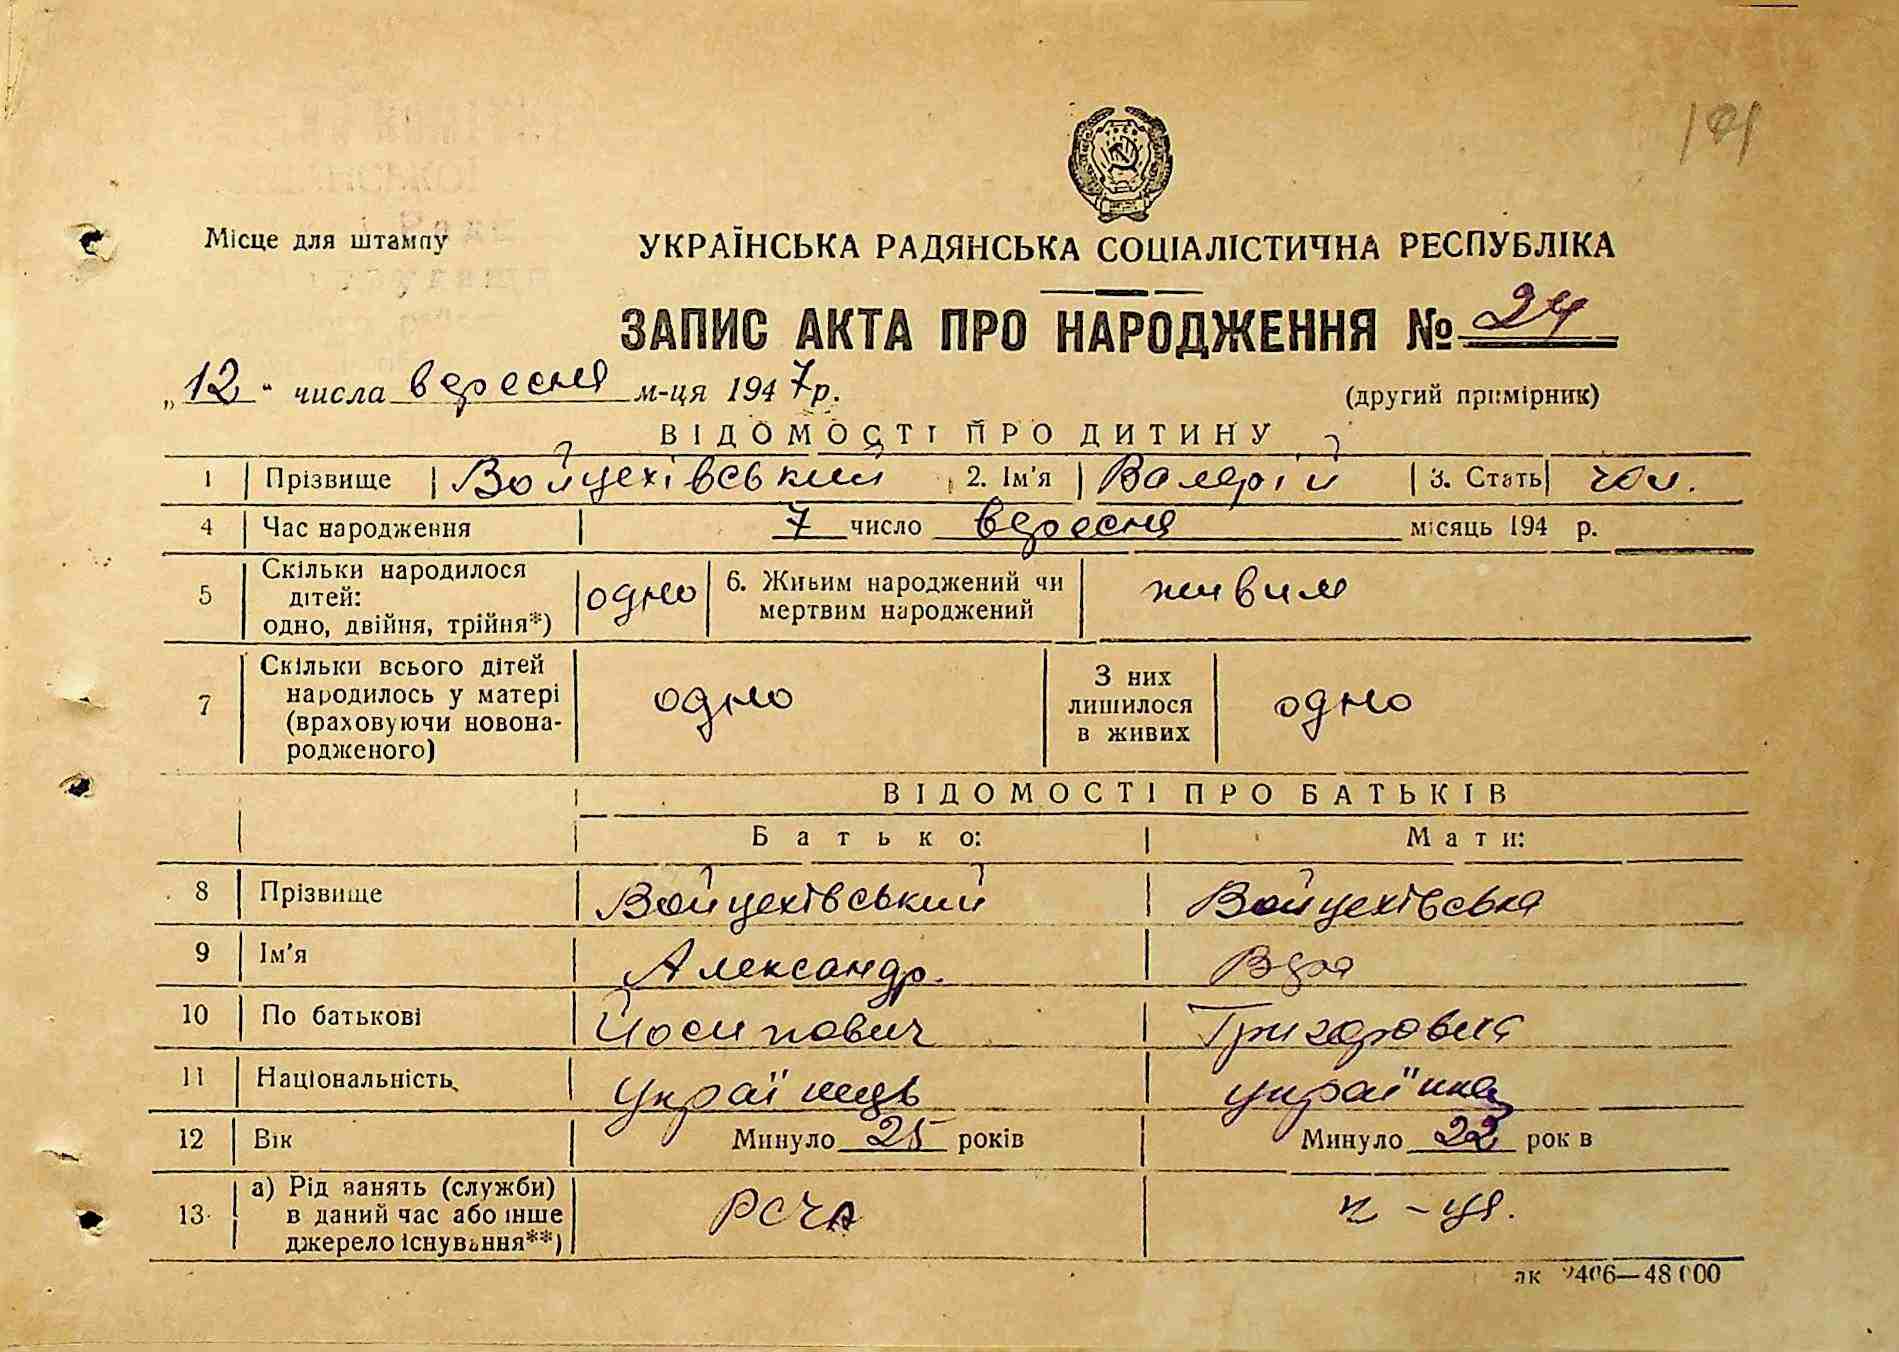 Місце для штампу
УКРАЇНСЬКА РАДЯНСЬКА СОЦІАЛІСТИЧНА РЕСПУБЛІКА
ЗАПИС АКТА ПРО НАРОДЖЕННЯ № 24
„12“ числа вересня м-ця 1947 р.
(другий примірник)
ВІДОМОСТІ ПРО ДИТИНУ
1 Прізвище Войцехівський 2. Ім'я Валерій 3. Стать чол.
4 Час народження 7 число вересня місяць 194 р.
5 Скільки народилося дітей: одно, двійня, трійня*) одно 6. Живим народжений чи мертвим народжений живим
7 Скільки всього дітей народилось у матері (враховуючи новонародженого) одно З них лишилося в живих одно
ВІДОМОСТІ ПРО БАТЬКІВ
Батько: Мати:
8 Прізвище Войцехівський Войцехівська
9 Ім'я Александр. Вера
10 По батькові Йосипович Григоровна
11 Національність українець українка
12 Вік Минуло 25 років Минуло 22 рок в
13 а) Рід занять (служби) в даний час або інше джерело існування**) РСЧА к-ця.
2406—48000